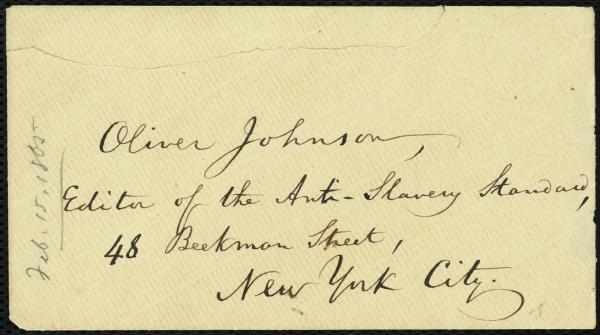 Oliver Johnson,
Editor of the Anti-Slavery Standard,
48 Beekman Street,
New York City.
Feb. 15, 1865